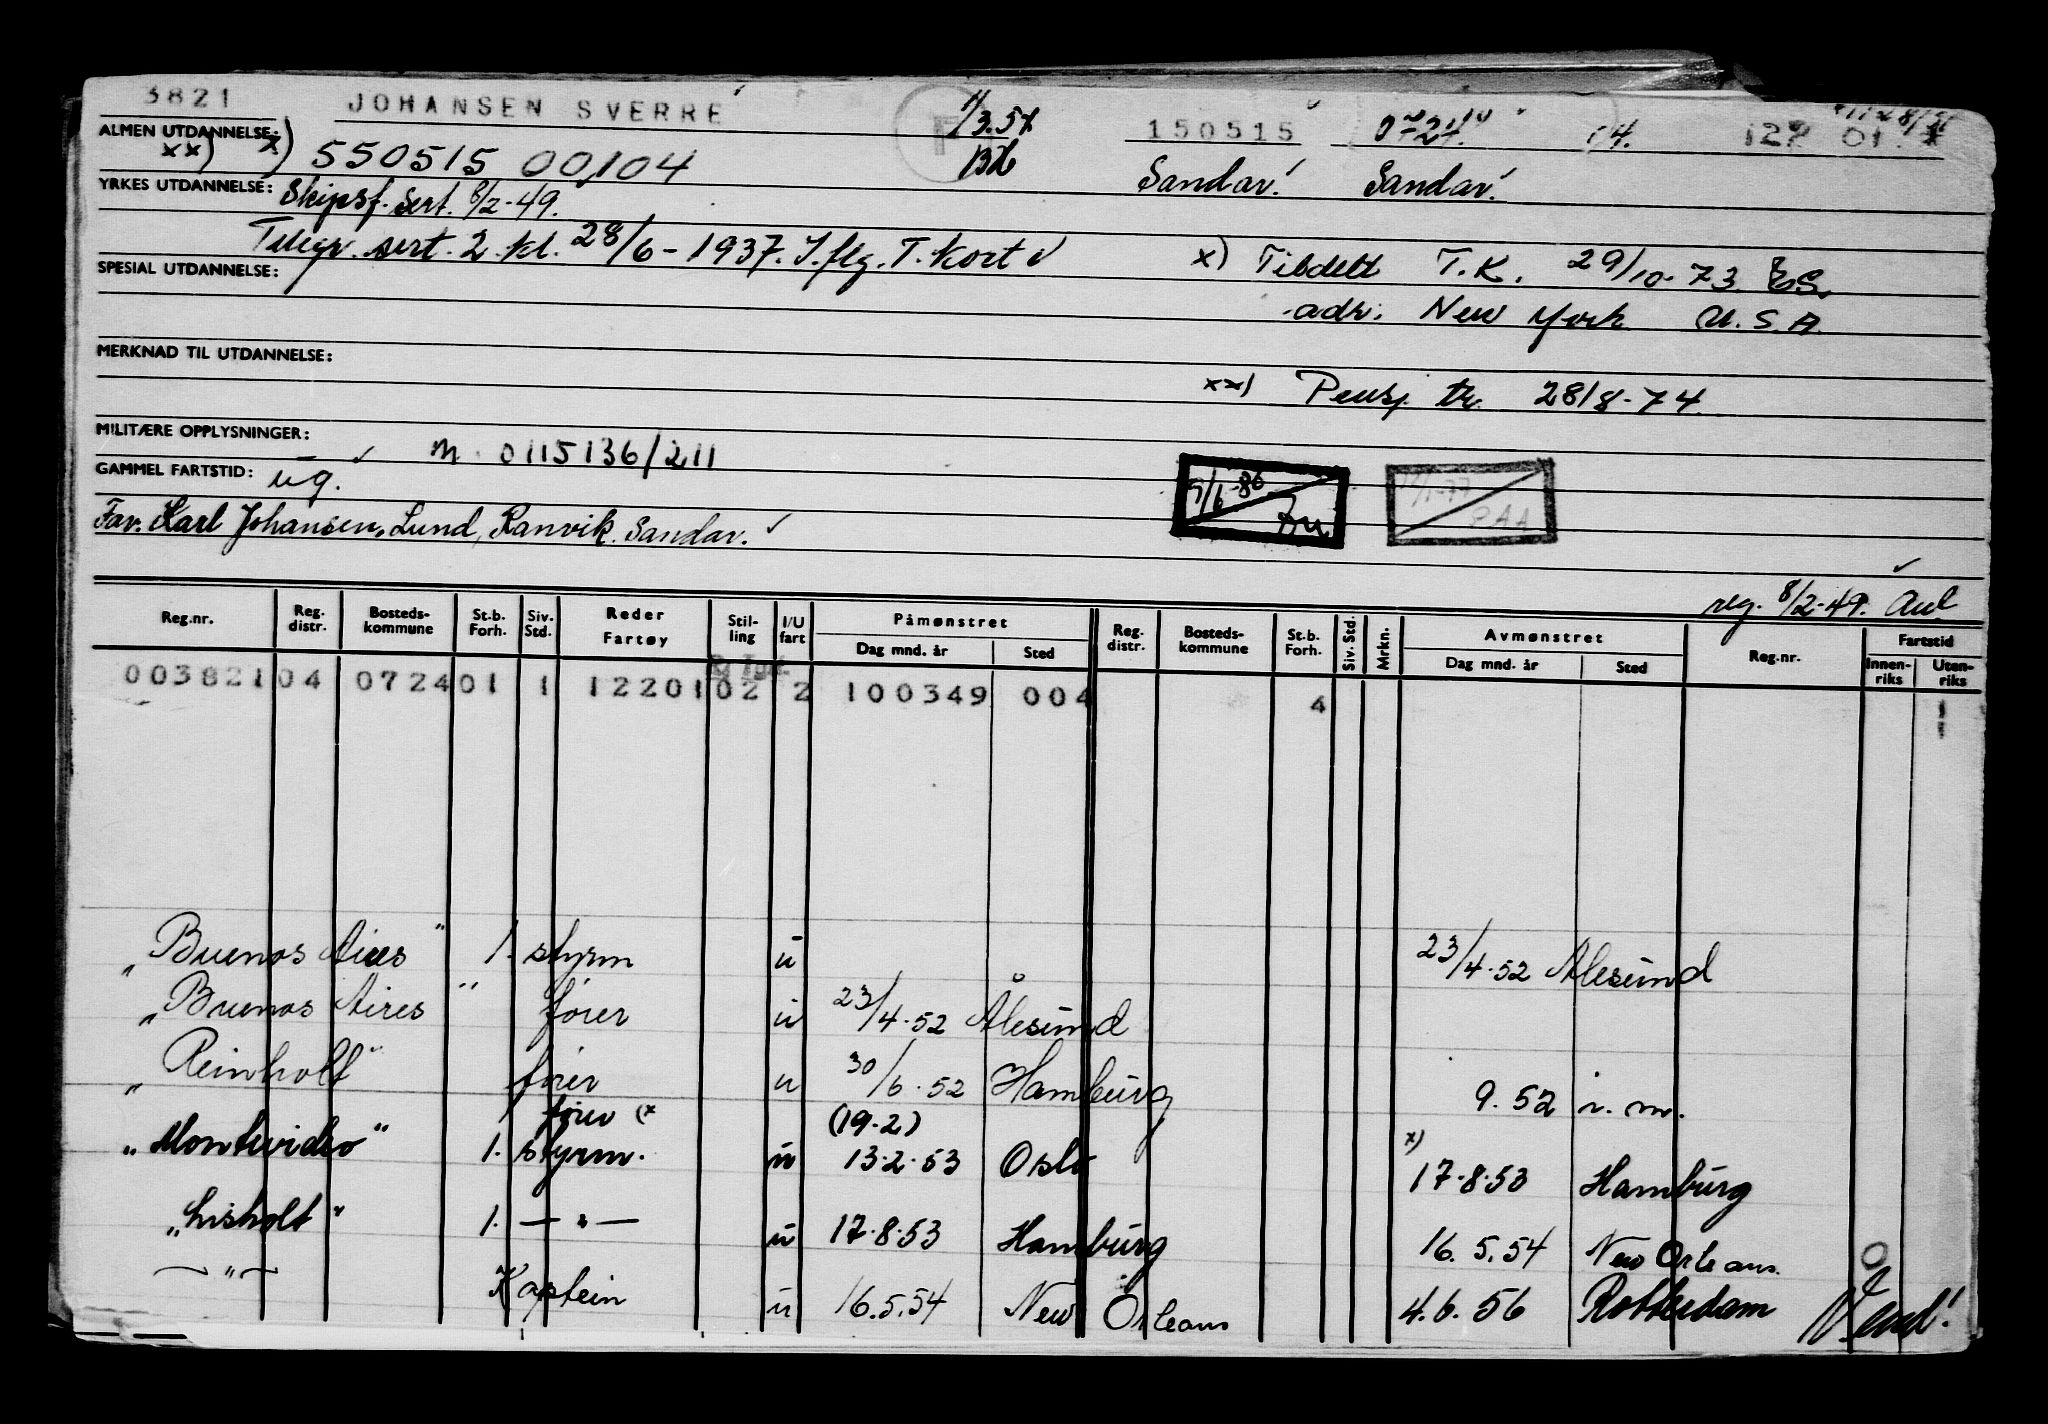 3821 JOHANSEN SVERRE 1/3.57 150515 0724 14. 122 01
ALMEN UTDANNELSE: xx) x) 550515 00,104 F Sandar. Sandar.
YRKES UTDANNELSE: Skipsf. sert. 8/2-49.
Telegr. sert. 2. kl. 28/6-1937. J. flg. T. Kort x) Tildelt T.K. 29/10-73 ES
SPESIAL UTDANNELSE:
adr. New York U.S.A
MERKNAD TIL UTDANNELSE:
xx) Pensj. tr. 28/8-74
MILITÆRE OPPLYSNINGER: M. 0115136/211
GAMMEL FARTSTID: ug. 9/6-86
Far. Karl Johansen, Lund, Ranvik. Sandar.
reg. 8/2-49. Aul
Reg.nr. Reg. distr. Bosteds-kommune St.b. Forh. Siv. Std. Reder Fartøy Stil-ling I/U fart Påmønstret Dag mnd. år Sted Reg. distr. Bosteds-kommune St.b. Forh. Siv. Std. Mrkn. Avmønstret Dag mnd. år Sted Reg.nr. Fartstid Innen-riks Uten-riks
003821 04 0724 01 1 12201 02 2 100349 004 4 1
"Buenos Aires" 1. styrm u 23/4-52 Ålesund
"Buenos Aires" fører u 23/4-52 Ålesund
"Reinholt" fører u 30/6-52 Hamburg 9.52 i.m.
fører (x (19-2)
"Montevideo" 1. styrm. u 13-2-53 Oslo x) 17-8-53 Hamburg
"Lisholt" 1. —"— u 17-8-53 Hamburg 16.5.54 New Orleans. 0
—"— Kaptein u 16.5.54 New Orleans 4.6.56 Rotterdam Vend!